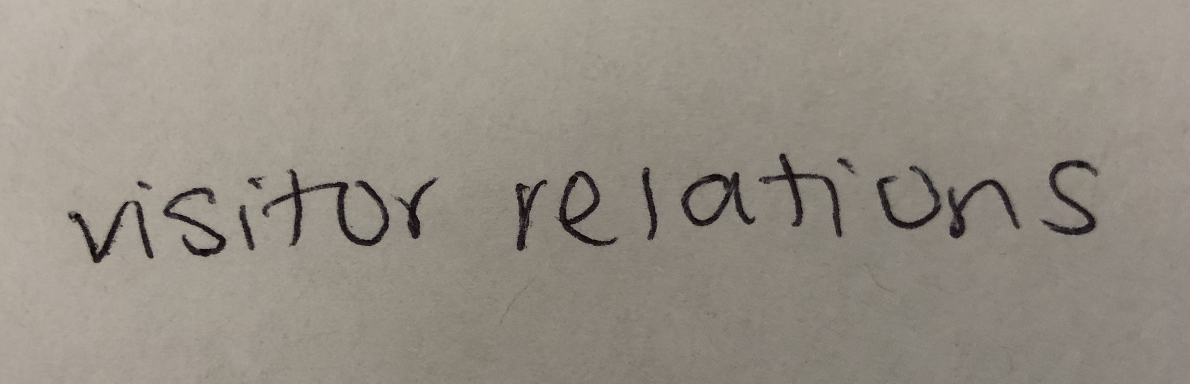 visitor relations